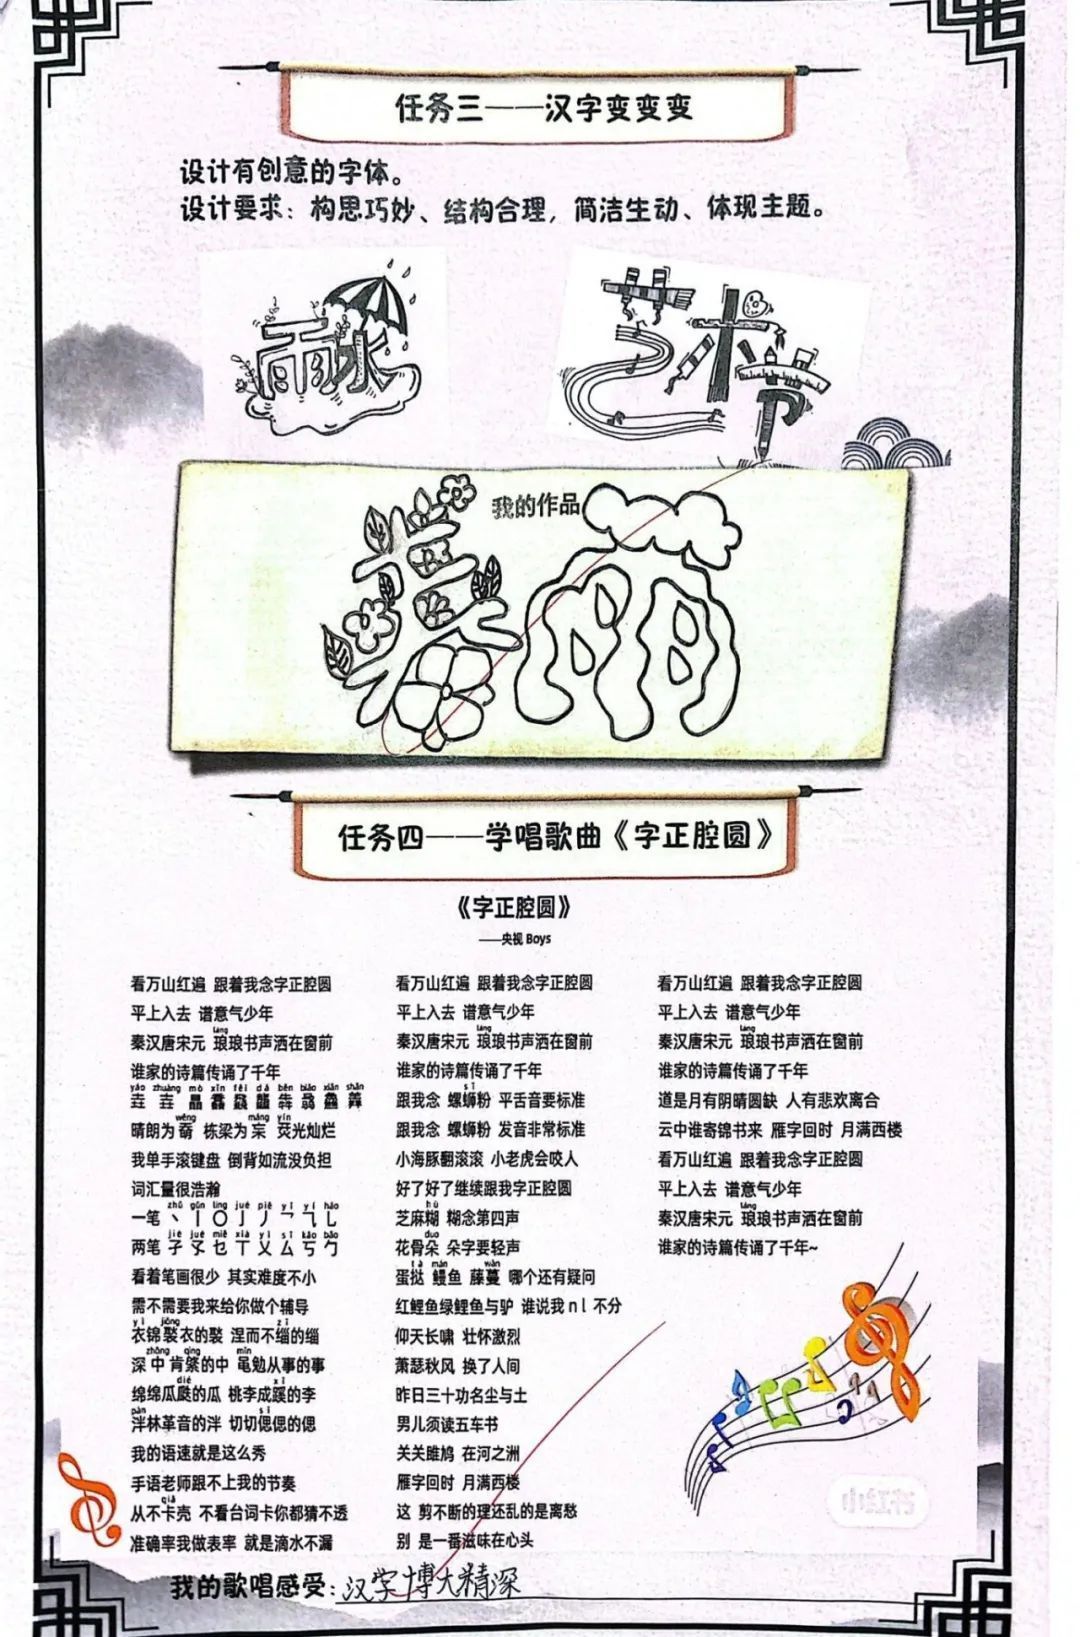 任务三——汉字变变变
设计有创意的字体。
设计要求：构思巧妙、结构合理，简洁生动、体现主题。
雨水
艺术节
我的作品
春雨
任务四——学唱歌曲《字正腔圆》
《字正腔圆》
——央视 Boys
看万山红遍 跟着我念字正腔圆
平上入去 谱意气少年
láng
秦汉唐宋元 琅琅书声洒在窗前
谁家的诗篇传诵了千年
yáo zhuàng mò xīn fēi dá bēn biāo xiān shān
wěng máng yín
我单手滚键盘 倒背如流没负担
词汇量很浩瀚
看着笔画很少 其实难度不小
需不需要我来给你做个辅导
yì jiǒng zī
衣锦褧衣的褧 涅而不缁的缁
zhòng qìng mǐn
深中肯綮的中 黾勉从事的事
dié xī
绵绵瓜瓞的瓜 桃李成蹊的李
pàn sī
泮林革音的泮 切切偲偲的偲
我的语速就是这么秀
手语老师跟不上我的节奏
qiǎ
从不卡壳 不看台词卡你都猜不透
准确率我做表率 就是滴水不漏
看万山红遍 跟着我念字正腔圆
平上入去 谱意气少年
láng
秦汉唐宋元 琅琅书声洒在窗前
谁家的诗篇传诵了千年
sī
跟我念 螺蛳粉 平舌音要标准
跟我念 螺蛳粉 发音非常标准
小海豚翻滚滚 小老虎会咬人
好了好了继续跟我字正腔圆
hù
芝麻糊 糊念第四声
duo
花骨朵 朵字要轻声
tà mán wàn
蛋挞 鳗鱼 藤蔓 哪个还有疑问
红鲤鱼绿鲤鱼与驴 谁说我 n l 不分
仰天长啸 壮怀激烈
萧瑟秋风 换了人间
昨日三十功名尘与土
男儿须读五车书
关关雎鸠 在河之洲
雁字回时 月满西楼
这 剪不断的理还乱的是离愁
别 是一番滋味在心头
看万山红遍 跟着我念字正腔圆
平上入去 谱意气少年
láng
秦汉唐宋元 琅琅书声洒在窗前
谁家的诗篇传诵了千年
道是月有阴晴圆缺 人有悲欢离合
云中谁寄锦书来 雁字回时 月满西楼
看万山红遍 跟着我念字正腔圆
平上入去 谱意气少年
láng
秦汉唐宋元 琅琅书声洒在窗前
谁家的诗篇传诵了千年~
我的歌唱感受：汉字博大精深